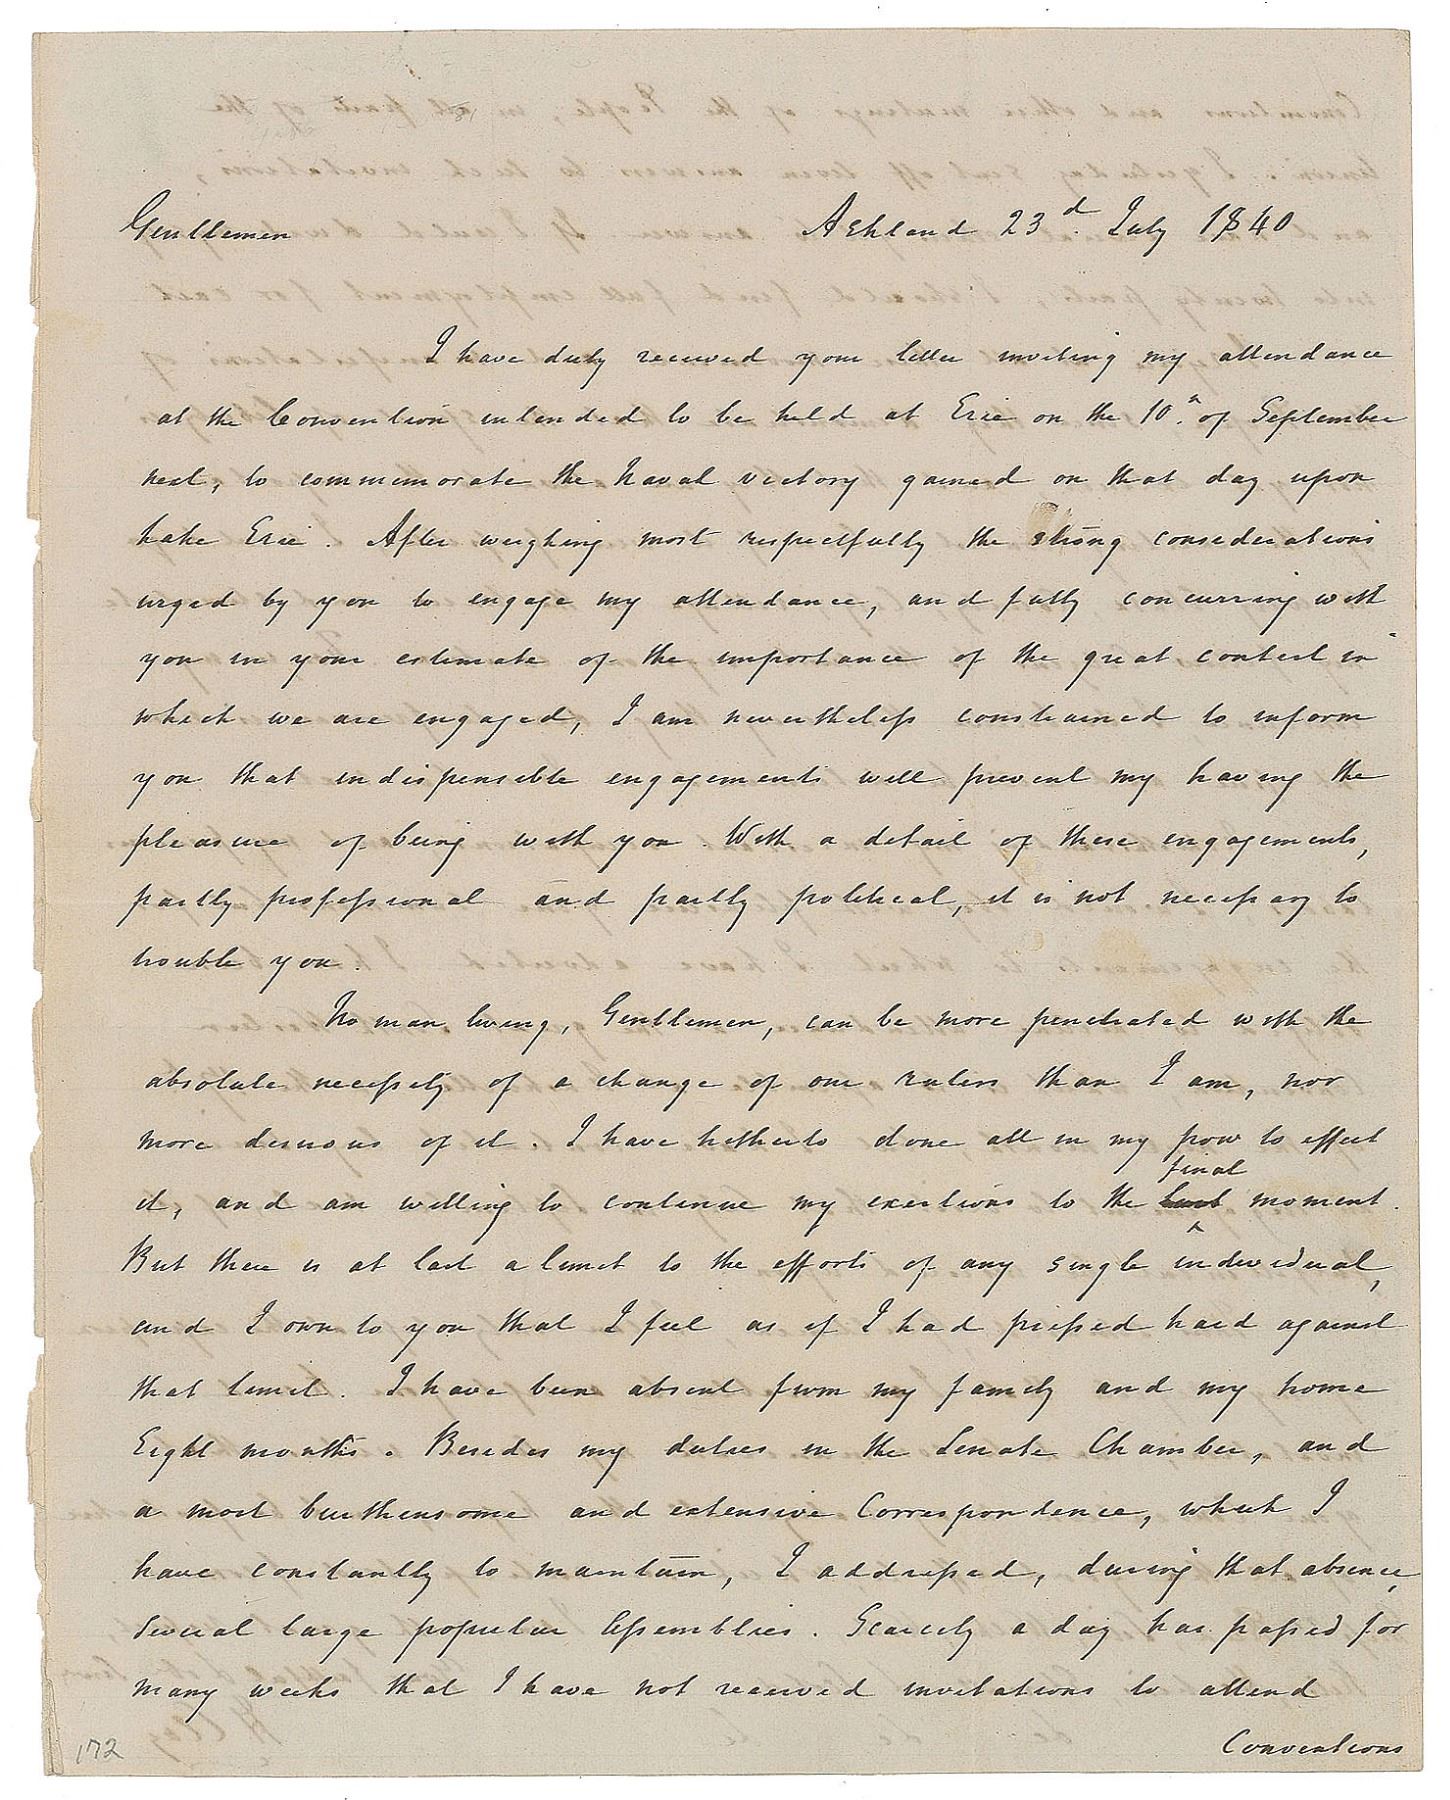 Gentlemen Ashland 23d. July 1840
I have duly received your letter inviting my attendance
at the Convention intended to be held at Erie on the 10h. of September
next, to commemorate the Naval victory gained on that day upon
Lake Erie. After weighing most respectfully the strong considerations
urged by you to engage my attendance, and fully concurring with
you in your estimate of the importance of the great contest in
which we are engaged, I am nevertheless constrained to inform
you that indispensible engagements will prevent my having the
pleasure of being with you. With a detail of these engagements,
partly professional and partly political, it is not necessary to
trouble you.
No man living, Gentlemen, can be more penetrated with the
absolute necessity of a change of our rulers than I am, nor
more desirous of it. I have hitherto done all in my pow to effect
final
it, and am willing to continue my exertions to the last moment.
But there is at last a limit to the efforts of any single individual,
and I own to you that I feel as if I had pressed hard against
that limit. I have been absent from my family and my home
Eight months. Besides my duties in the Senate Chamber, and
a most burthensome and extensive Correspondence, which I
have constantly to maintain, I addressed, during that absence,
several large popular Assemblies. Scarcely a day has passed for
many weeks that I have not received invitations to attend
Conventions
172